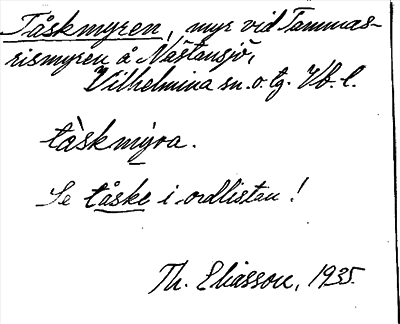 Tåskmyren, myr vid Tammas-
rismyren å Nästansjö,
Vilhelmina sn. o. tg. Vb. l.
tàskmỳra.
Se tåske i ordlistan!
Th. Eliasson, 1935.